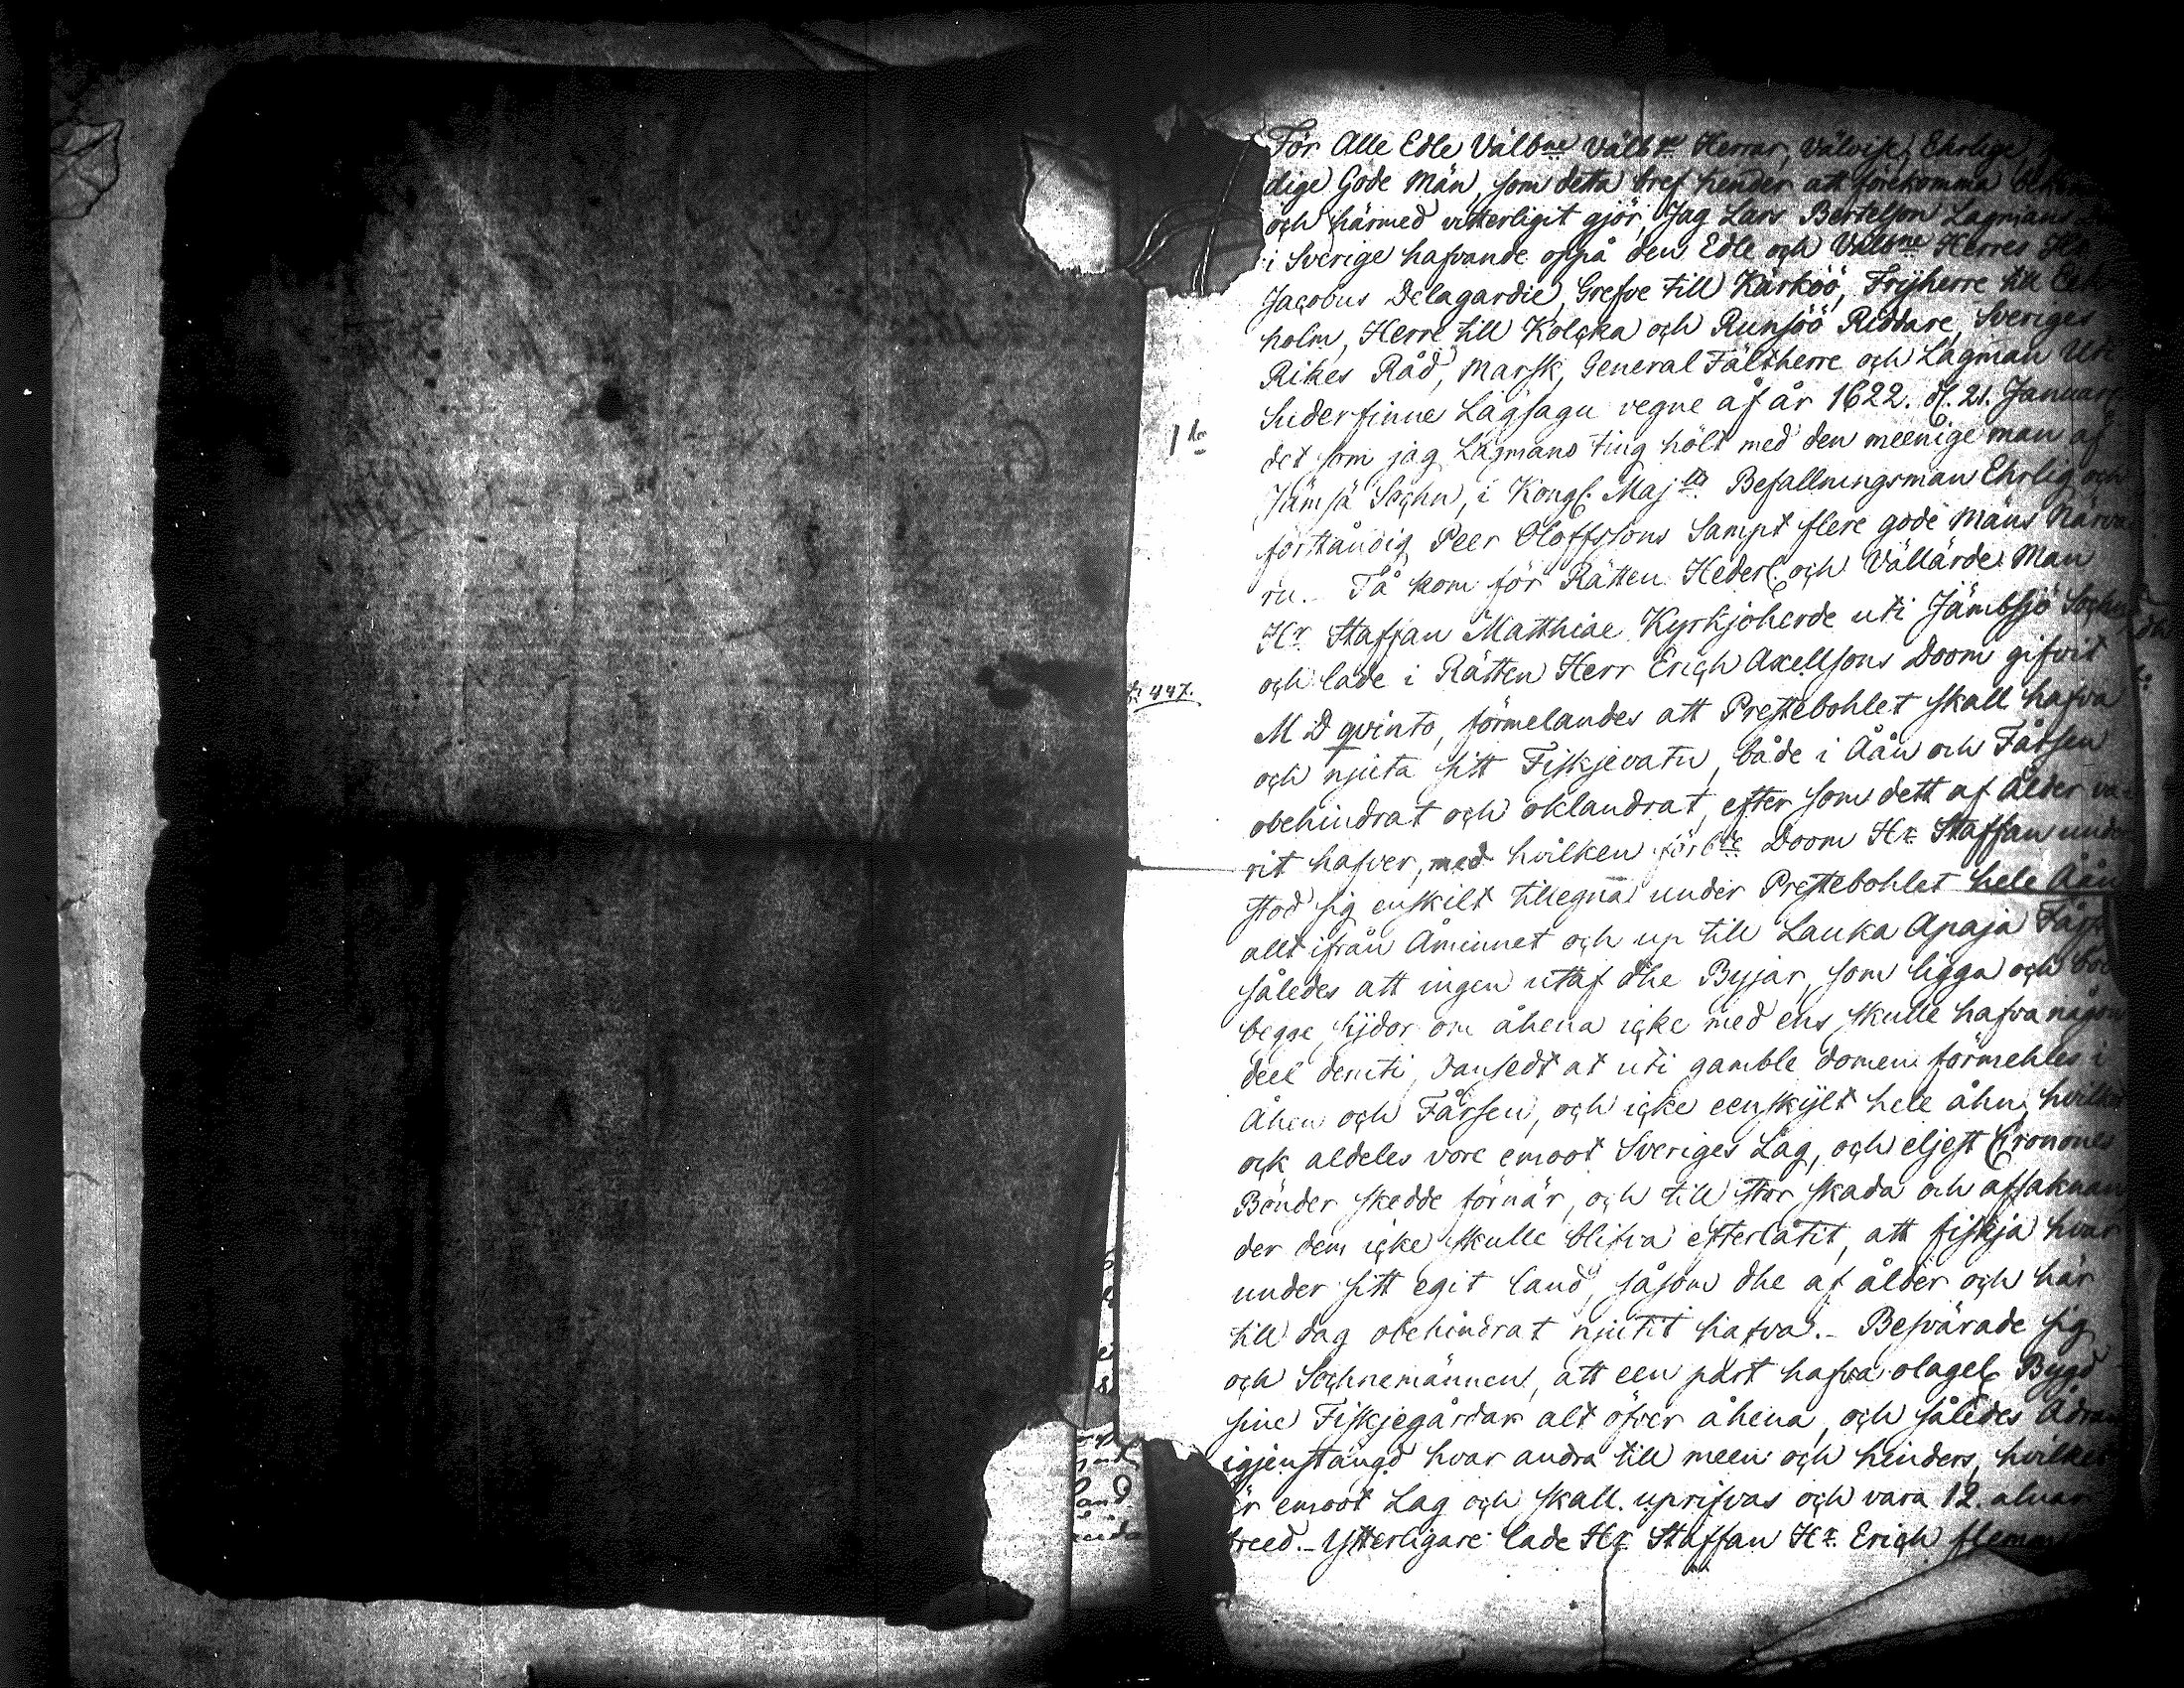 För Alle Edle Välbne Välb:e Herrar, Välvise, Ehrlige,
dige Gode Män, som detta bref hender att förekomma
och härmed vitterligit gjör, Jag Lars Bertelson Lagmans
i Sverige hafvande oppå den Edle och Välbne Herres
Jacobus Delagardie, Grefve till Käcköö, Frijherre till
holm, Herre till Kolcka och Runsöö Riddare, Sveriges
Rikes Råd, Marsk, General Fältherre och Lagman Uti
Suderfinne Lagsagu vegne af år 1622. d. 21. Januarij
1to
det som jag Lagmans ting hölt med den meenige man af
Jämsä Sochn, i Kongl. Maj:ts Befallningsman Ehrlig och
förståndig Peer Oloffssons Sampt flere gode Mäns Närva
ru. Tå kom för Rätten Hederl. och Vällärde Man
Hr Staffan Matthiae Kyrkjoherde uti Jämbsjö Sochn
och lade i Rätten Herr Erich Axellsons Doom gifvit
447.
M D qvinto, förmelandes att Prestebohlet skall hafva
och njuta sitt Fiskjevatn, både i Åån och Fårsen
obehindrat och oklandrat, efter som dett af ålder va
rit hafver, med hvilken förb:te Doom Hr Staffan under
stod sig enskilt tillegna under Prestebohlet hele Åån
allt ifrån Åminnet och up till Lauka Apaja Fårs
således att ingen uttaf dhe Byjar, som ligga och bo
begge sijdor om åhena icke med ens skulle hafva någon
deel deruti, Oansedt at uti gamble domen förmehles i
Åhen och Fårsen, och icke eenskylt hele åhn, hvilket
ock aldeles vore emoot Sveriges Lag, och eljest Cronones
Bönder skedde förnär, och till stor skada och afsaknan
der dem icke skulle blifva efterlåtit, att fiskja hvar
under sitt egit land, såsom dhe af ålder och här
till dag obehindrat njutit hafva. - Besvärade sig
och Sochnemännen, att een part hafva olagel. Bygd
sine Fiskjegårdar alt öfver åhena, och således Ådran
igjenstängd hvar andra till meen och hinders, hvilket
är emoot Lag och skall uprifvas och vara 12. alnar
breed. - Ytterligare lade Hr Staffan Hr. Erich flem